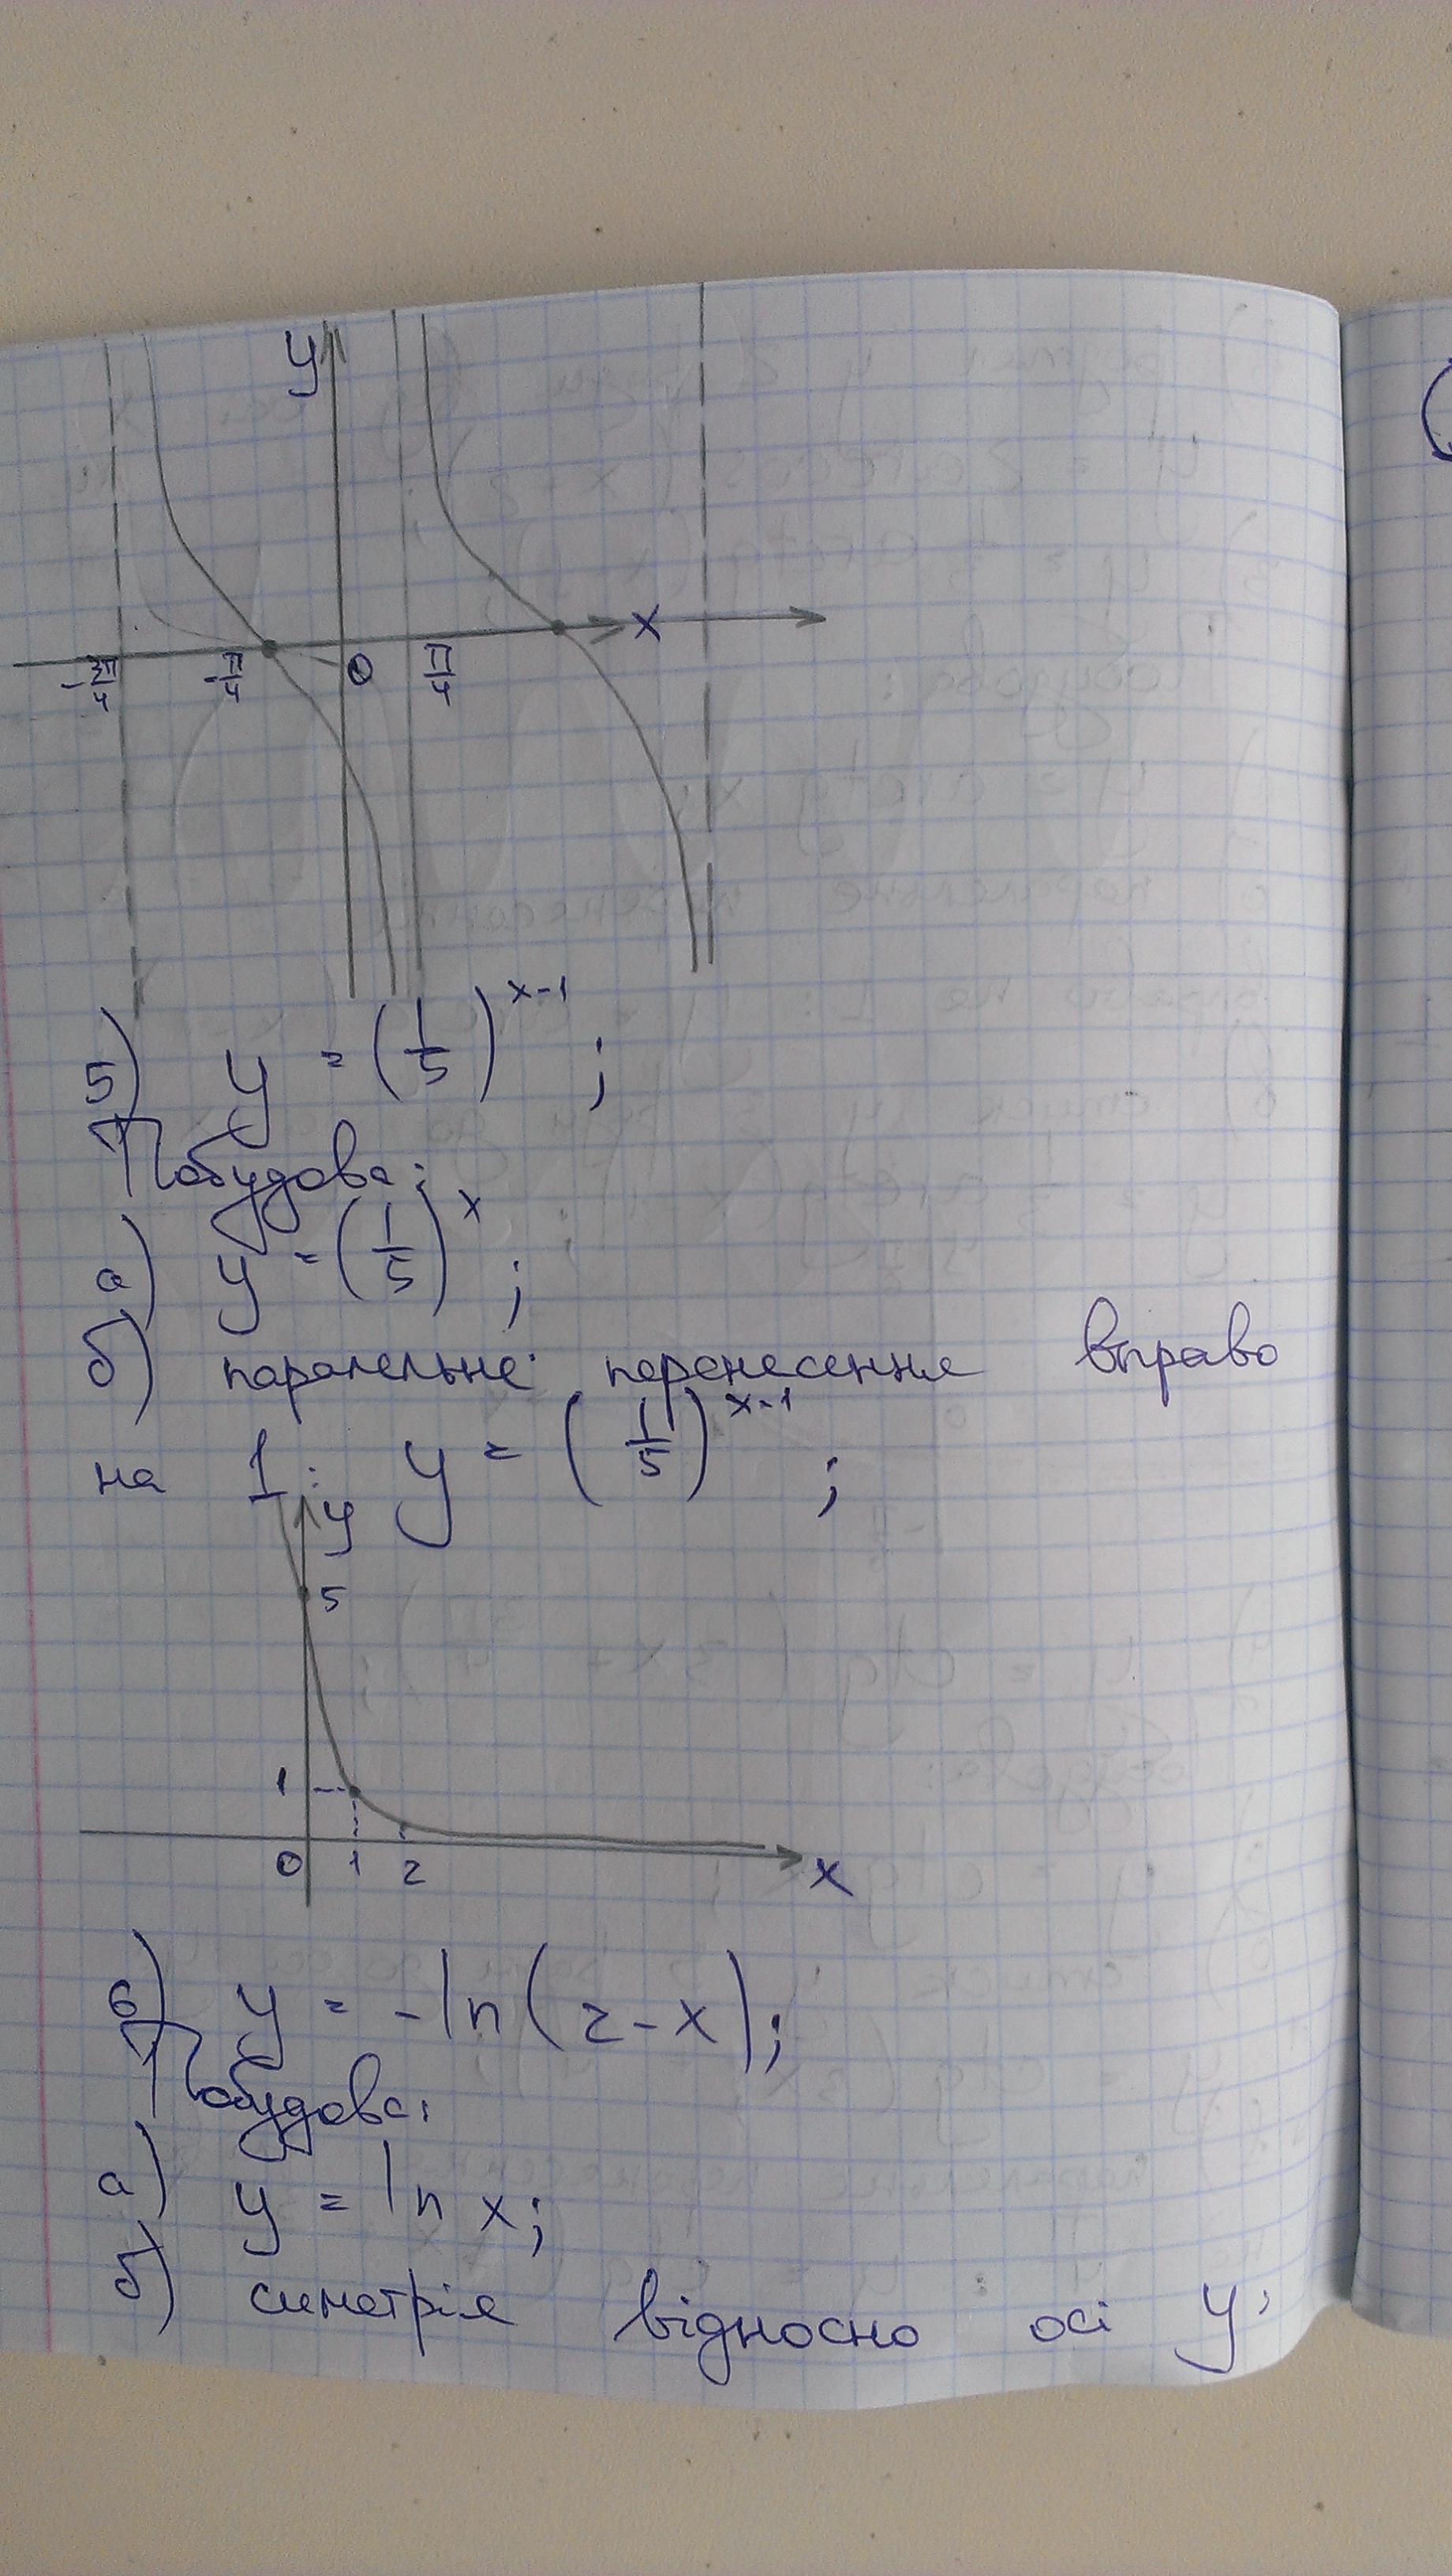 y
x
-3π/4 -π/4 0 π/4
5) y = (1/5)^(x-1) ;
Побудова:
а) y = (1/5)^x ;
б) паралельне перенесення вправо
на 1: y = (1/5)^(x-1) ;
y
5
1
0 1 2
x
6) y = -ln(2-x);
Побудова:
а) y = ln x;
б) симетрія відносно осі y: